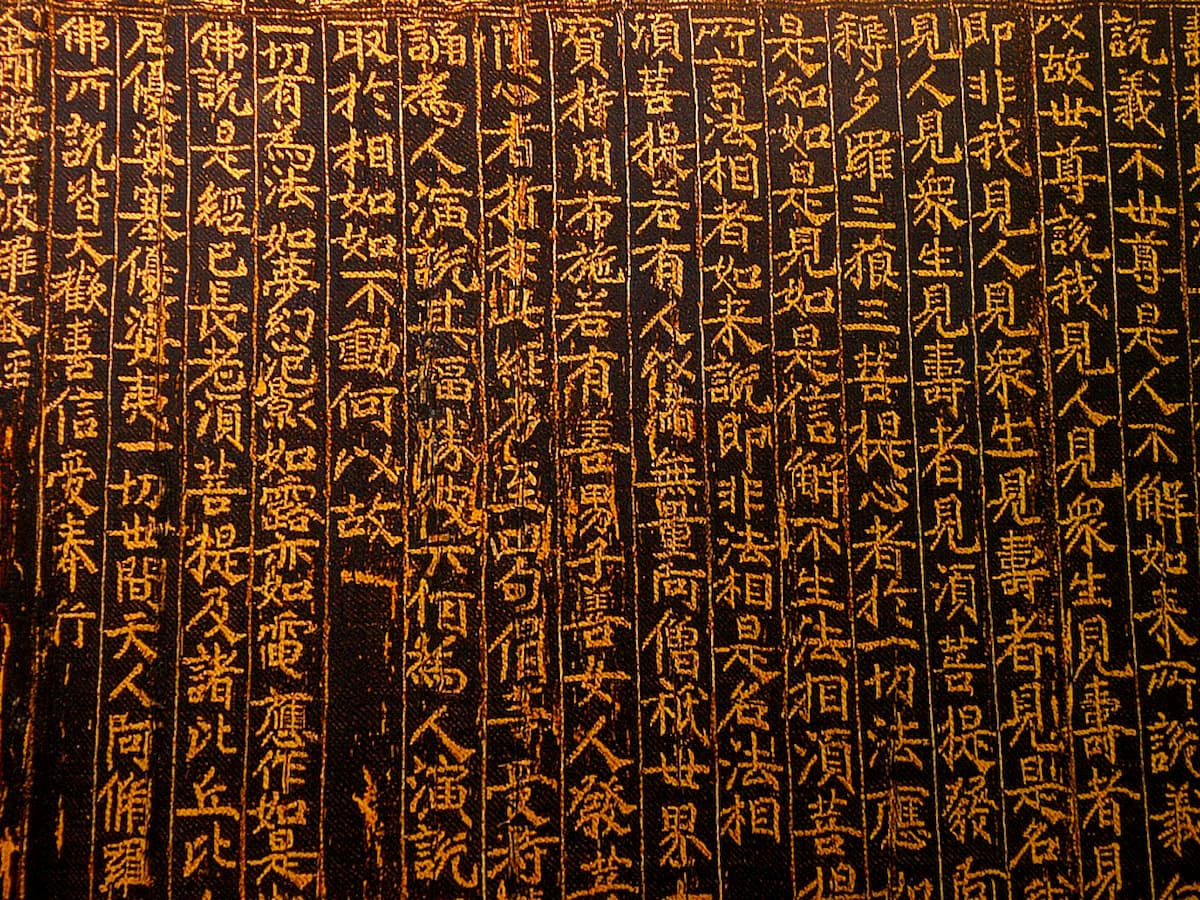 說義不世尊是人不解如来所說義
以故世尊說我見人見衆生見壽者見
即非我見人見衆生見壽者見是名我
見人見衆生見壽者見湏菩提發阿
耨多羅三藐三菩提心者於一切法應如
是知如是見如是信解不生法相湏菩提
所言法相者如来說即非法相是名法相
湏菩提若有人以滿無量阿僧祇世界
寶持用布施若有善男子善女人發菩
心者持於此經乃至四句偈等受持
誦為人演說其福勝彼云何為人演說
取於相如如不動何以故
一切有為法如夢幻泡影如露亦如電應作如是
佛說是經已長老湏菩提及諸比丘比
尼優婆塞優婆夷一切世間天人阿脩羅
佛所說皆大歡喜信受奉行
金剛般若波羅蜜經